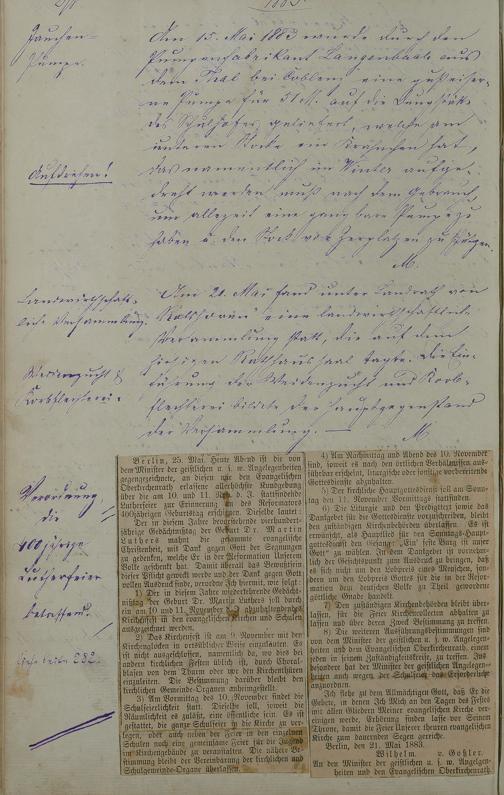 1883.
Jauchen-
Pumpe.
Am 15. Mai 1883 wurde durch den
Pumpenfabrikant Langenbach aus
dem Thal bei Coblenz eine gußeiser-
ne Pumpe für 51 M. auf die
des Schulhofes geliefert, welche am
unteren Stocke ein Krähnchen hat,
Aufdrehen!
das namentlich im Winter aufge-
dreht werden muß nach dem Gebrauch,
um allezeit eine gangbare Pumpe zu
haben u. den Stock vor Zerplatzen zu schützen.
M.
Landwirthschaft-
liche Versammlung.
Am 21. Mai fand unter Landrath von
eine landwirthschaftliche
Versammlung statt, die auf dem
hiesigen Rathhaussaal tagte. Die Ein-
Weidenzucht &
Korbflechterei.
führung der Weidenzucht und Korb-
flechterei bildete den Hauptgegenstand
der Versammlung. —
M.
Verordnung
die
400jährige
Lutherfeier
betreffend.
Siehe Seite 232.
Berlin, 25. Mai. Heute Abend ist die von
dem Minister der geistlichen u. s. w. Angelegenheiten
gegengezeichnete, an diesen und den Evangelischen
Oberkirchenrath erlassene Allerhöchste Kundgebung
über die am 10. und 11. Nov. d. J. stattfindende
Lutherfeier zur Erinnerung des Reformators
400jährigen Geburtstag erfolgt. Dieselbe lautet:
Der in diesem Jahre bevorstehende vierhundert-
jährige Gedächtnißtag der Geburt Dr. Martin
Luthers mahnt die gesammte evangelische
Christenheit, mit Dank gegen Gott der Segnungen
zu gedenken, welche Er in der Reformation Unserem
Volke geschenkt hat. Damit überall das Bewußtsein
dieser Pflicht geweckt werde und der Dank gegen Gott
vollen Ausdruck finde, verordne Ich hiermit, wie folgt:
1) Der in diesem Jahre wiederkehrende Gedächt-
nißtag der Geburt Dr. Martin Luthers soll durch
ein am 10. und 11. November d. J. abzuhaltendes
Kirchenfest in den evangelischen Kirchen und Schulen
ausgezeichnet werden.
2) Das Kirchenfest ist am 9. November mit den
Kirchenglocken in ortsüblicher Weise einzuläuten. Es
ist nicht ausgeschlossen, namentlich da, wo dies bei
andern kirchlichen Festen üblich ist, durch Choral-
blasen von dem Thurm oder vor den Kirchenthüren
einzuleiten. Die Bestimmung darüber bleibt den
kirchlichen Gemeinde-Organen anheimgestellt.
3) Am Vormittag des 10. November findet die
Schulfeierlichkeit statt. Dieselbe soll, soweit die
Räumlichkeit es zuläßt, eine öffentliche sein. Es ist
gestattet, die ganze Schulfeier in die Kirche zu ver-
legen, oder auch neben der Feier in den einzelnen
Schulen noch eine gemeinsame Feier für die Jugend
im Kirchengebäude zu veranstalten. Die nähere Be-
stimmung bleibt der Vereinbarung der kirchlichen und
Schulgemeinde-Organe überlassen.
4) Am Nachmittag und Abend des 10. November
sind, soweit es nach den örtlichen Verhältnissen aus-
führbar erscheint, liturgische oder sonstige vorbereitende
Gottesdienste abzuhalten.
5) Der kirchliche Hauptgottesdienst soll am Sonn-
tag den 11. November Vormittags stattfinden.
6) Die Liturgie und den Predigttext sowie das
Dankgebet für die Gottesdienste vorzuschreiben, bleibt
den zuständigen Kirchenbehörden überlassen. Es ist
erwünscht, als Hauptlied für den Sonntags-Haupt-
gottesdienst den Gesang: „Ein' feste Burg ist unser
Gott“ zu wählen. In dem Dankgebet ist vornehm-
lich der Gesichtspunkt zum Ausdruck zu bringen, daß
es sich nicht um das Lob eines Menschen, son-
dern um den Lobpreis Gottes für die in der Refor-
mation dem deutschen Volke zu Theil gewordene
göttliche Gnade handelt.
7) Den zuständigen Kirchenbehörden bleibt über-
lassen, für die Feier Kirchencollecten abhalten zu
lassen und über deren Zweck Bestimmung zu treffen.
8) Die weiteren Ausführungsbestimmungen sind
von dem Minister der geistlichen u. s. w. Angelegen-
heiten und dem Evangelischen Oberkirchenrath, einem
jeden in seinem Zuständigkeitskreise, zu treffen. Ins-
besondere hat der Minister der geistlichen Angelegen-
heiten auch wegen der Schulfeier das Erforderliche
anzuordnen.
Ich flehe zu dem Allmächtigen Gott, daß Er die
Gebete, in denen Ich Mich an den Tagen des Festes
mit allen Gliedern Meiner evangelischen Kirche ver-
einigen werde, Erhörung finden lasse vor Seinem
Throne, damit die Feier Unserer theuren evangelischen
Kirche zum dauernden Segen gereiche.
Berlin, den 21. Mai 1883.
Wilhelm.
v. Goßler.
An den Minister der geistlichen u. s. w. Angelegen-
heiten und den Evangelischen Oberkirchenrath